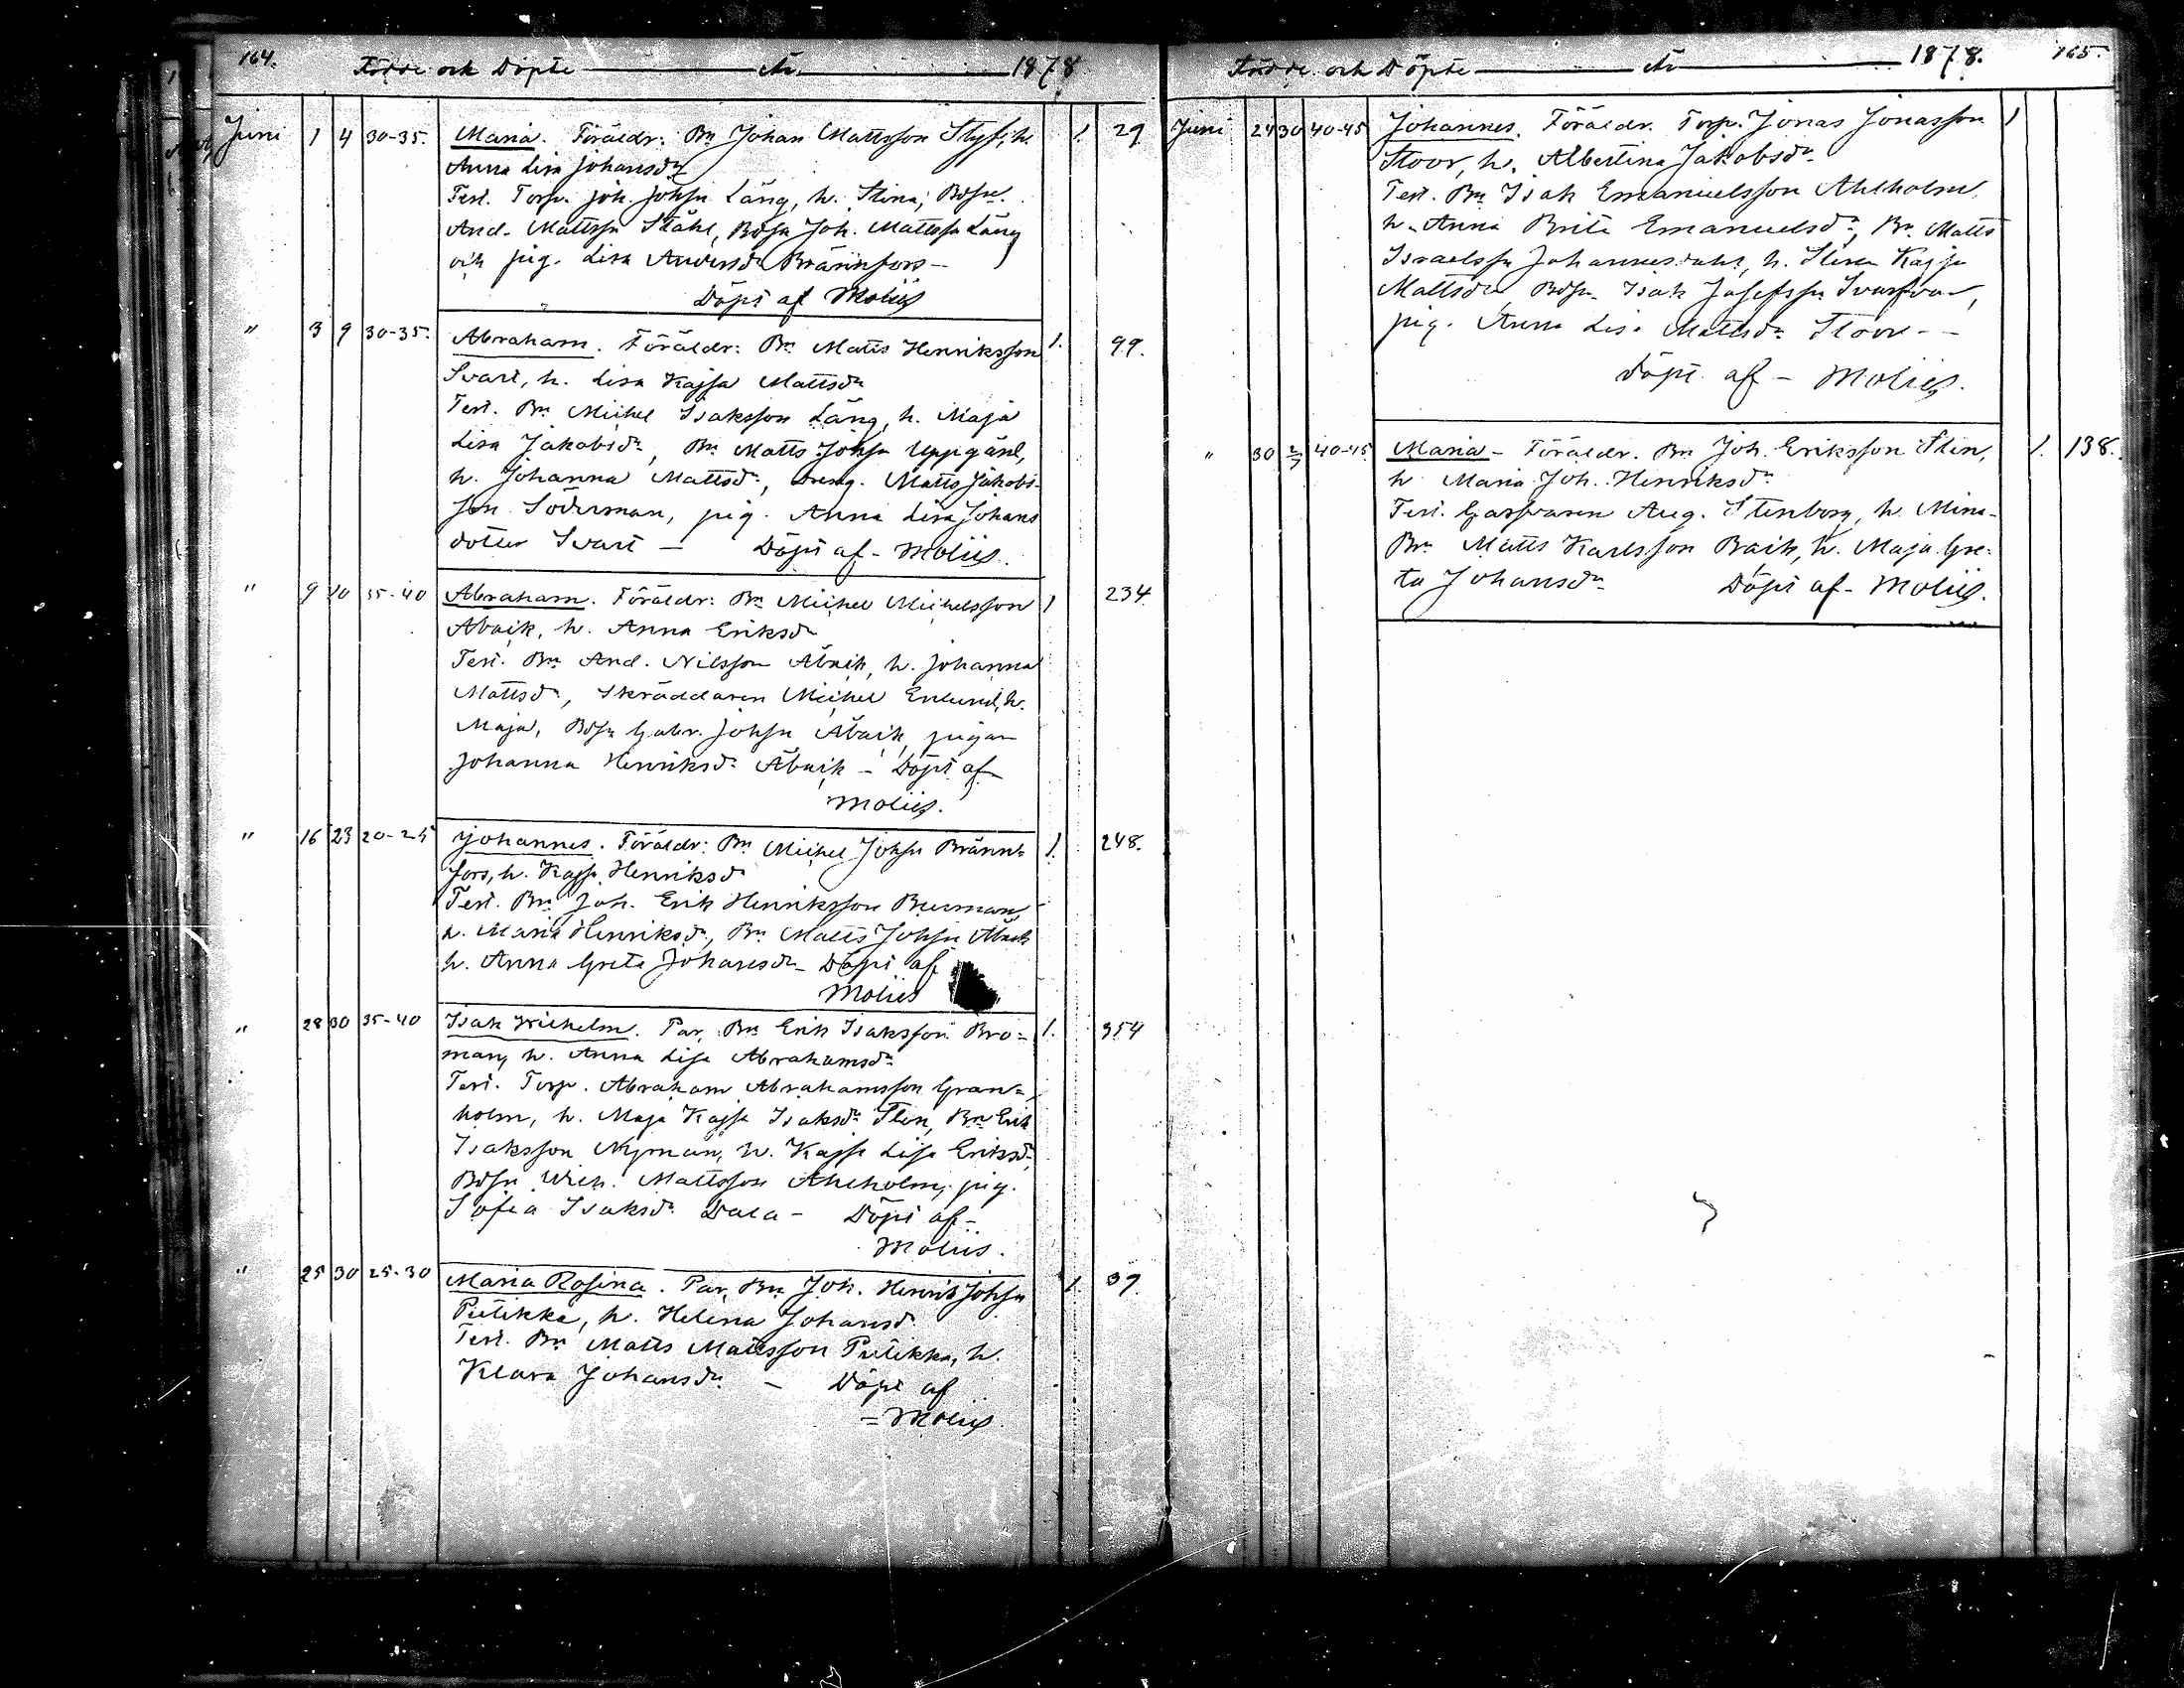 164. Födde och Döpte År 1878
Juni 1 4 30-35. Maria. Föräldr: Bn Johan Mattsson Styf, h. 1. 29
Anna Lisa Johansdr
Test. Torp. Joh. Johsn Läng, h. Stina, Bdsn.
And. Mattssn Ståhl, Bdsn Joh. Mattssn Läng
och pig. Lisa Andersdr Brännfors-
Döpt af Moliis
" 3 9 30-35. Abraham. Föräldr: Bn Matts Henriksson 1. 99.
Svart, h. Lisa Kajsa Mattsdr
Test. Bn Michel Isaksson Läng, h. Maja
Lisa Jakobsdr, Bn Matts Johsn Uppgård,
h. Johanna Mattsdr, dreng. Matts Jakobs-
son Söderman, pig. Anna Lisa Johans
dotter Svart - Döpt af - Moliis.
" 9 10 35-40 Abraham. Föräldr: Bn Michel Michelsson 1 234
Åbaik, h. Anna Eriksdr
Test. Bn And. Nilsson Åbaik, h. Johanna
Mattsdr, Skräddaren Michel Enlund, h.
Maja, Bdsn Gabr. Johsn Åbaik, pigan
Johanna Henriksdr Åbaik - Döpt af
Moliis.
" 16 23 20-25 Johannes. Föräldr: Bn Michel Johsn Bränn- 1. 248.
fors, h. Kajsa Henriksdr
Test. Bn Joh. Erik Henriksson Burman,
h. Maria Henriksdr, Bn Matts Johsn Åbaik
h. Anna Greta Johansdr - Döpt af
Moliis
" 28 30 35-40 Isak Wilhelm. Par. Bn Erik Isaksson Bro- 1. 354
man, h. Anna Lisa Abrahamsdr
Test. Torp. Abraham Abrahamsson Gran-
holm, h. Maja Kajsa Isaksdr Sten, Bn Erik
Isaksson Nyman, h. Kajsa Lisa Eriksdr,
Bdsn Wilh. Mattsson Ahlholm, pig.
Sofia Isaksdr Dala - Döpt af -
Moliis.
" 25 30 25-30 Maria Rosina. Par. Bn Joh. Henrik Johsn 1. 39.
Peitikka, h. Helena Johansdr
Test. Bn Matts Mattsson Peitikka, h.
Klara Johansdr - Döpt af
= Moliis.
Födde och Döpte År 1878. 165.
Juni 24 30 40-45 Johannes. Föräldr. Torp. Jonas Jonasson 1
Stoor, h. Albertina Jakobsdr
Test. Bn Isak Emanuelsson Ahlholm,
h. Anna Brita Emanuelsdr, Bn Matts
Israelssn Johannesdahl, h. Stina Kajsa
Mattsdr, Bdsn Isak Josefssn,
pig. Anna Lisa Mattsdr Stoor - -
Döpt af - Moliis.
" 30 2/7 40-45 Maria - Föräldr. Bn Joh. Eriksson Sten, 1. 138.
h Maria Joh. Henriksdr
Test. Garfvaren Aug. Stenberg, h. Mina-
Bn Matts Karlsson Baik, h. Maja Gre-
ta Johansdr Döpt af - Moliis.